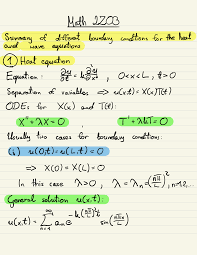 Math 2203
Summary of different boundary conditions for the heat
and wave equations
① Heat equation
Equation: ∂u/∂t = k ∂²u/∂x² , 0<x<L, t>0
Separation of variables ⇒ u(x,t) = X(x)T(t)
ODEs for X(x) and T(t):
X'' + λX = 0 , T' + λkT = 0
Usually two cases for boundary condition:
(i) u(0,t) = u(L,t) = 0
⇒ X(0) = X(L) = 0
In this case λ>0, λ = λₙ = (nπ/L)², n=1,2,...
General solution u(x,t):
u(x,t) = ∑ aₙ e^(-k(nπ/L)²t) sin(nπx/L)